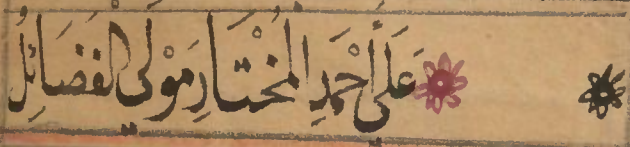 عَلَى أَحْمَدِ الْمُخْتَارِ مَوْلَى الفَضَائِلُ